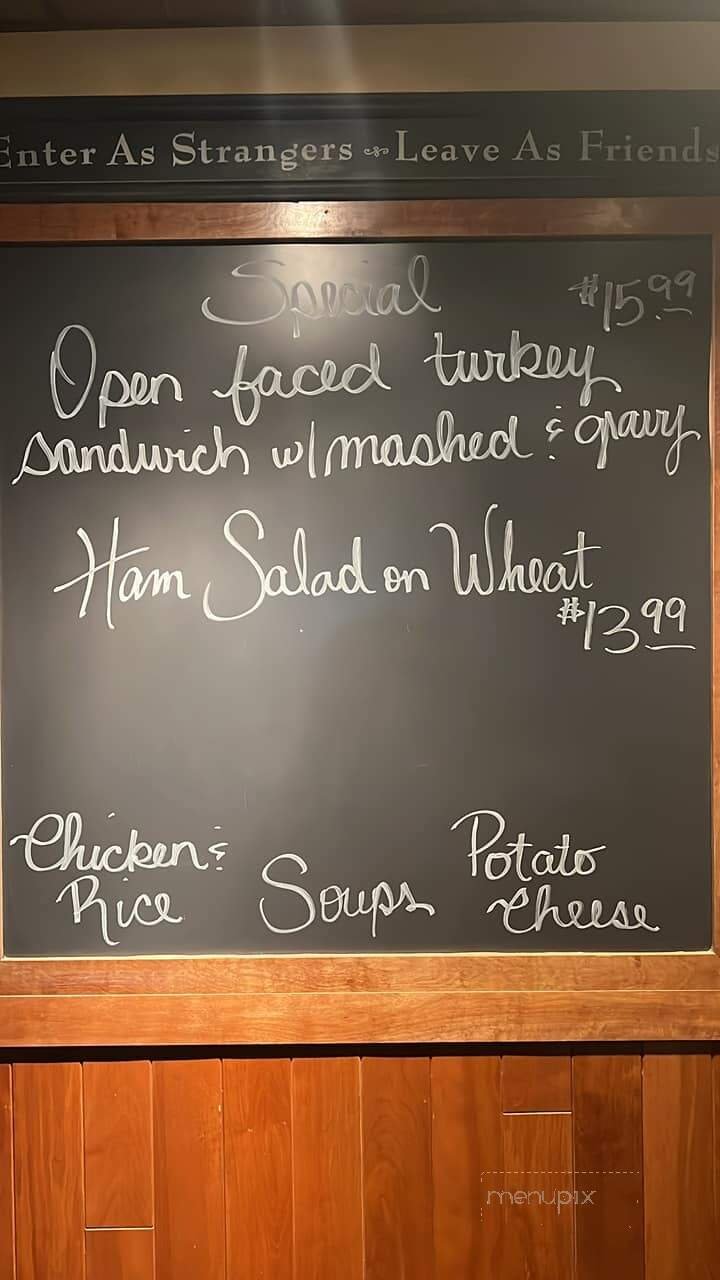 Enter As Strangers Leave As Friends
Special $15.99
Open faced turkey
sandwich w/ mashed & gravy
Ham Salad on Wheat
$13.99
Chicken & Rice
Soups
Potato Cheese
menupix